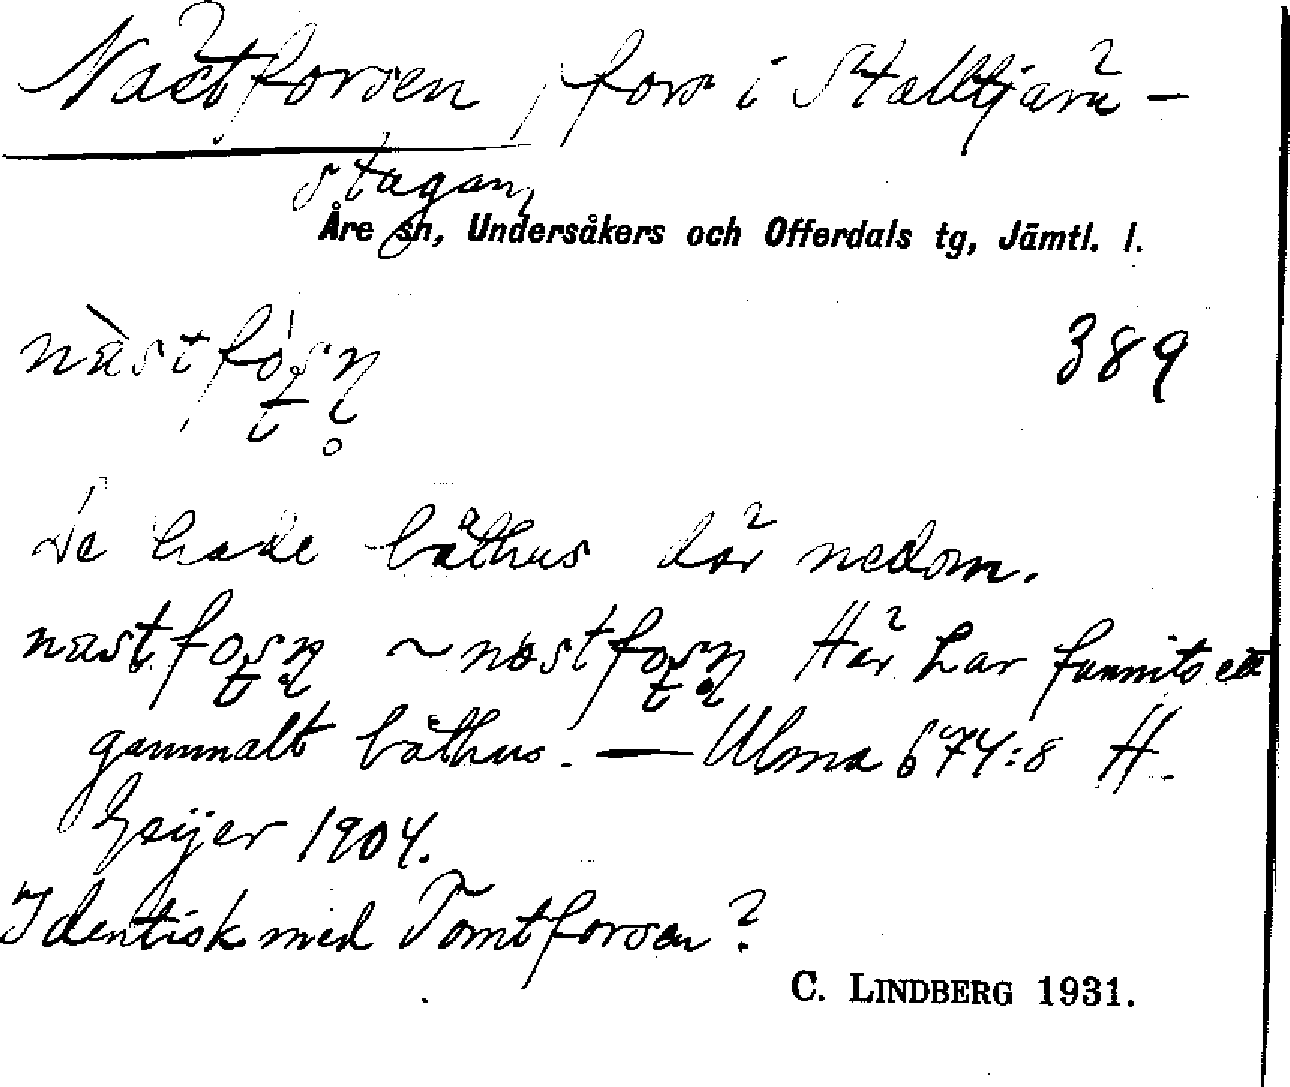 Nästforsen, fors i Stalltjärn-
stugan,
Åre sn, Undersåkers och Offerdals tg, Jämtl. l.
389
De hade båthus där nedom.
Här har funnits ett
gammalt båthus. — Ulma 674:8 H.
Geijer 1904.
Identisk med Tomtforsen?
C. LINDBERG 1931.